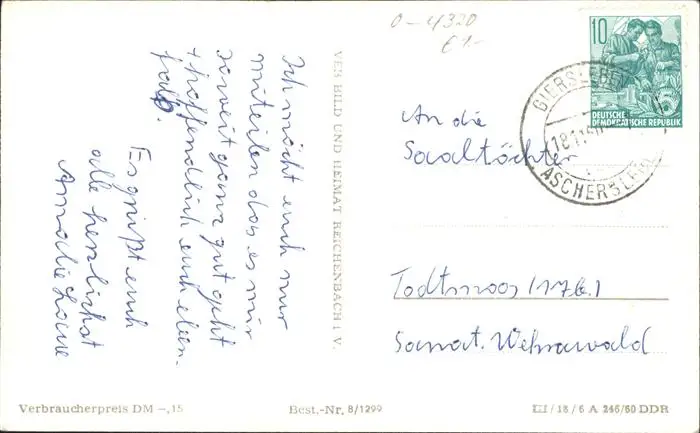 0-4320
€ 1-
10
DEUTSCHE
DEMOKRATISCHE REPUBLIK
GIERSLEBEN
18.1.
ASCHERSLEBEN
Ich möcht euch nur
mitteilen das es mir
soweit ganz gut geht
+ hoffendlich euch eben-
falls.
Es grüßt euch
alle herzlichst
Amalie
VEB BILD UND HEIMAT REICHENBACH I V.
An die
Saaltöchter
Todtmoos (17b.)
Sanat. Wehrawald
Verbraucherpreis DM -,15
Best.-Nr. 8/1299
III/18/6 A 246/60 DDR